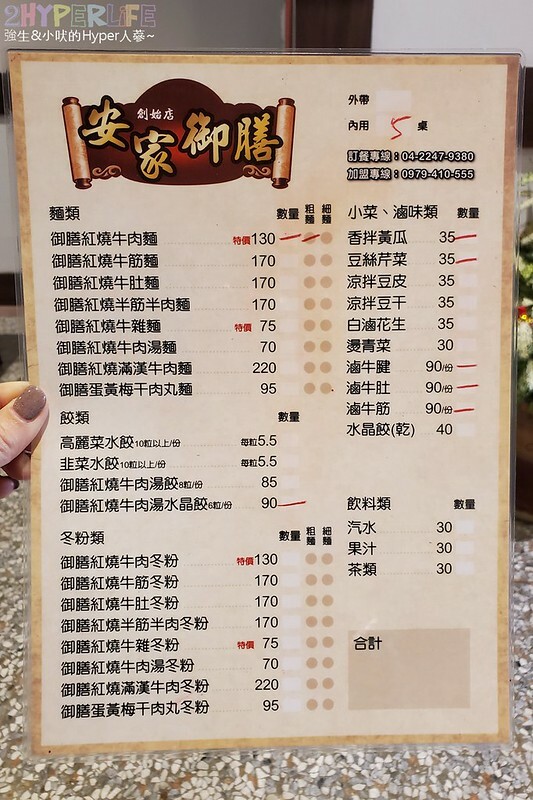 2HYPERLIFE
強生&小吠的Hyper人蔘~
創始店
安家御膳
外帶
內用 5 桌
訂餐專線:04-2247-9380
加盟專線:0979-410-555
麵類 數量 粗麵 細麵
御膳紅燒牛肉麵 特價130
御膳紅燒牛筋麵 170
御膳紅燒牛肚麵 170
御膳紅燒半筋半肉麵 170
御膳紅燒牛雜麵 特價 75
御膳紅燒牛肉湯麵 70
御膳紅燒滿漢牛肉麵 220
御膳蛋黃梅干肉丸麵 95
餃類 數量
高麗菜水餃10粒以上/份 每粒5.5
韭菜水餃10粒以上/份 每粒5.5
御膳紅燒牛肉湯餃8粒/份 85
御膳紅燒牛肉湯水晶餃6粒/份 90
冬粉類 數量 粗麵 細麵
御膳紅燒牛肉冬粉 特價130
御膳紅燒牛筋冬粉 170
御膳紅燒牛肚冬粉 170
御膳紅燒半筋半肉冬粉 170
御膳紅燒牛雜冬粉 特價 75
御膳紅燒牛肉湯冬粉 70
御膳紅燒滿漢牛肉冬粉 220
御膳蛋黃梅干肉丸冬粉 95
小菜、滷味類 數量
香拌黃瓜 35
豆絲芹菜 35
涼拌豆皮 35
涼拌豆干 35
白滷花生 35
燙青菜 30
滷牛腱 90/份
滷牛肚 90/份
滷牛筋 90/份
水晶餃(乾) 40
飲料類 數量
汽水 30
果汁 30
茶類 30
合計